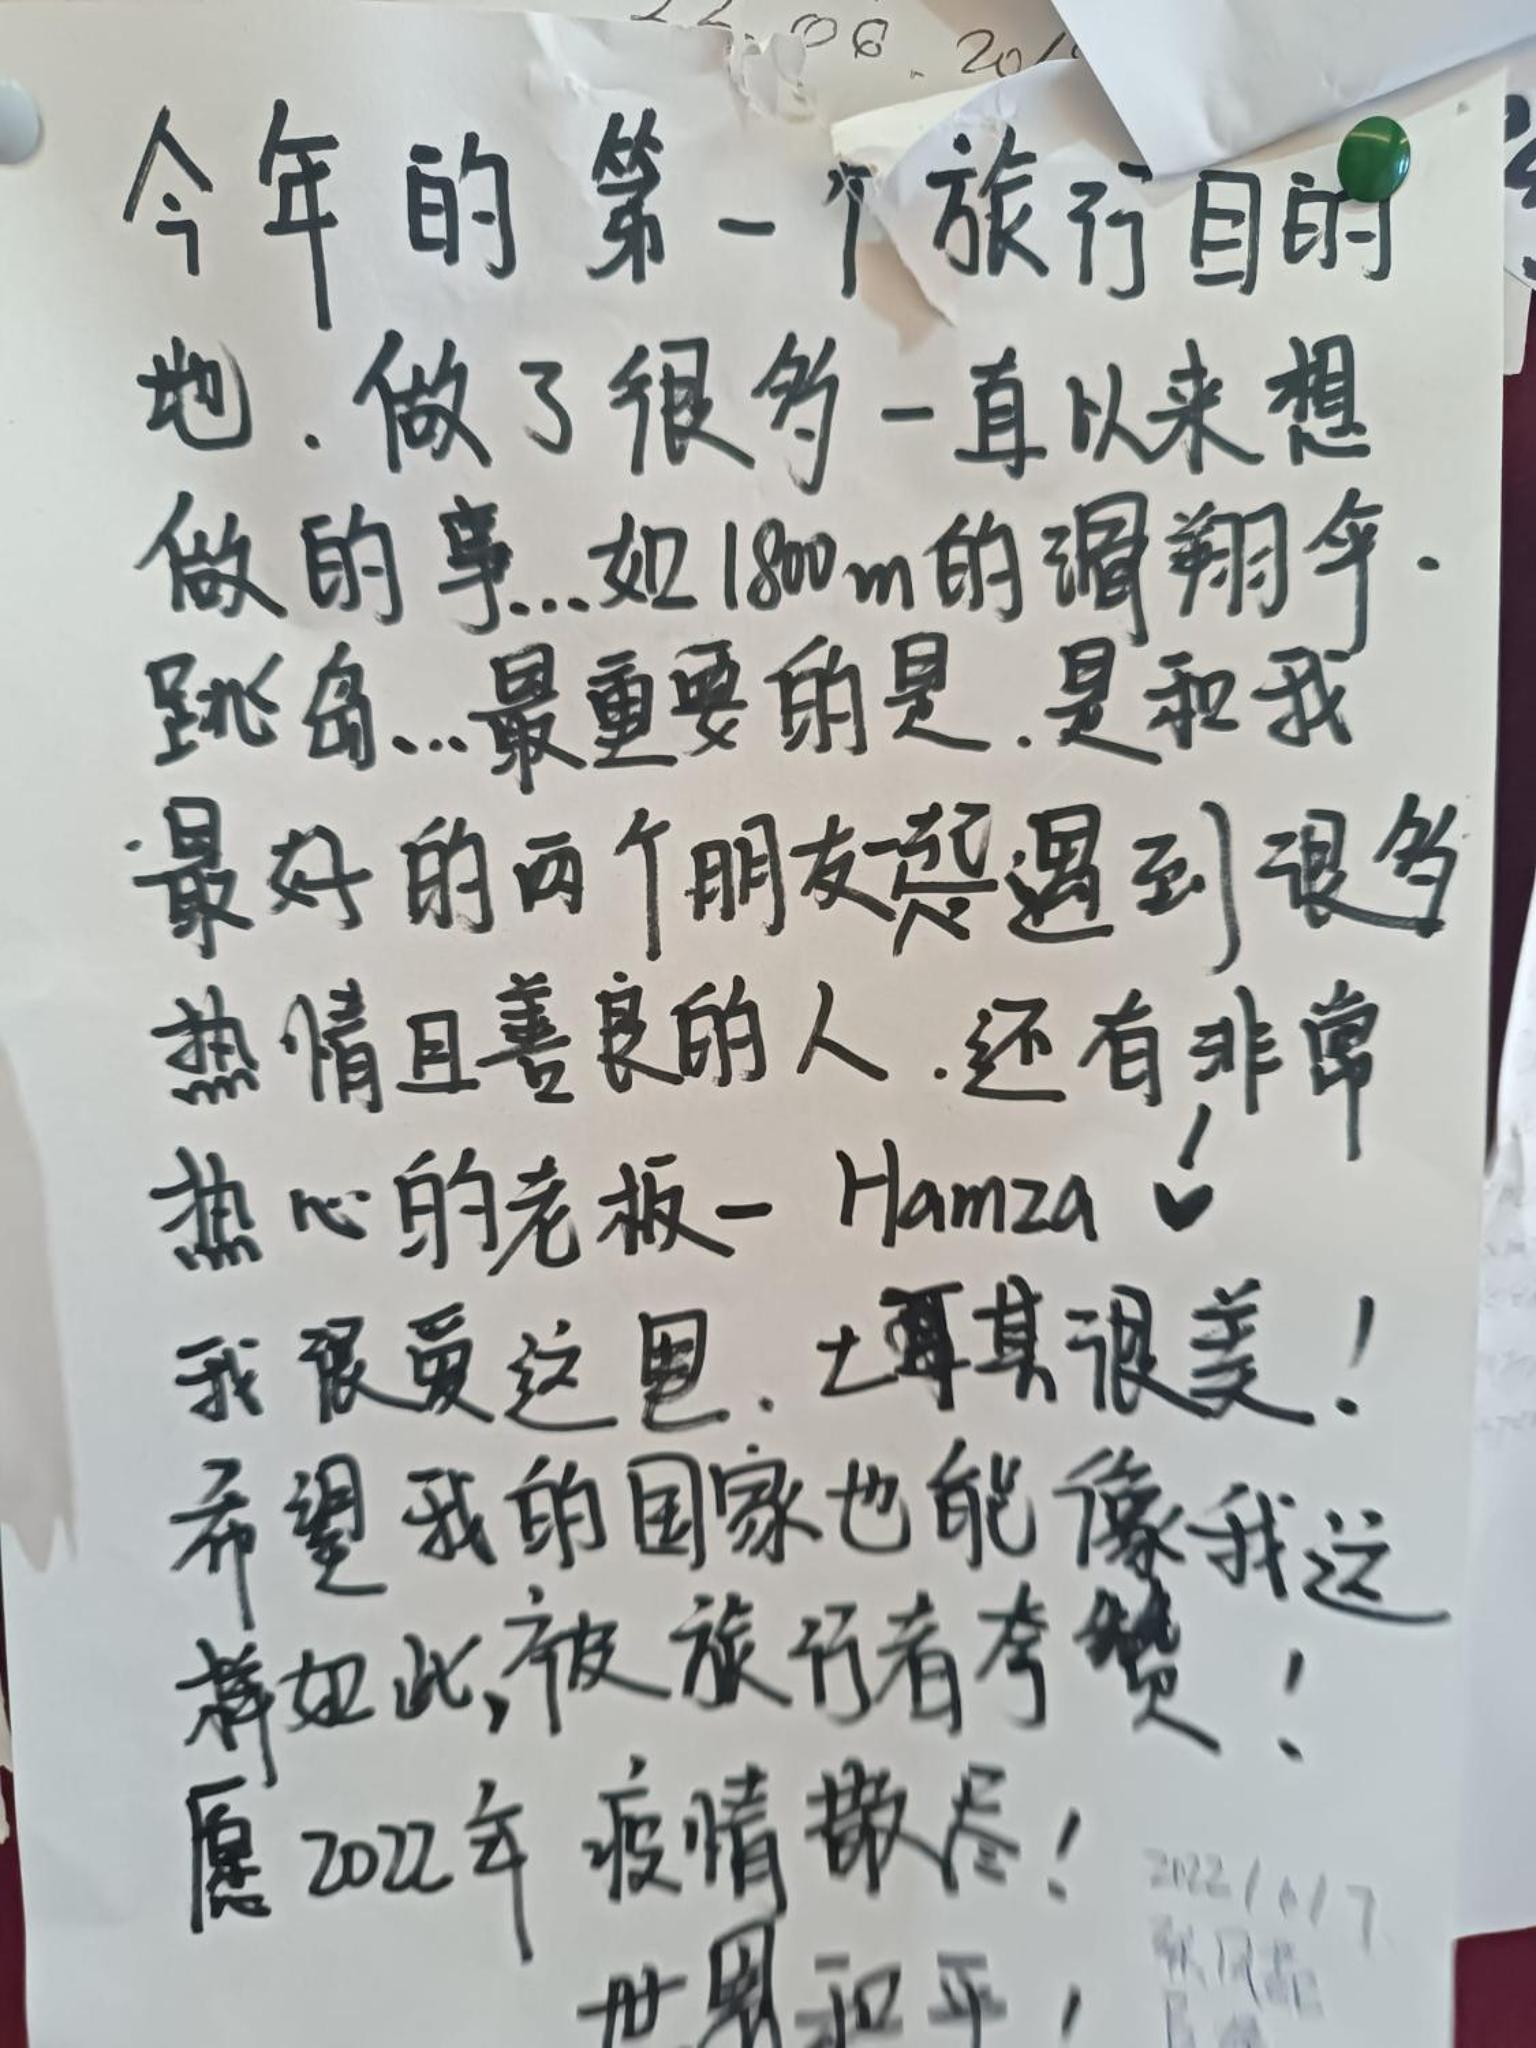 22.06.201
今年的第一个旅行目的
地.做了很多一直以来想
做的事...如1800m的滑翔伞.
跳岛...最重要的是.是和我
最好的两个朋友一起遇到很多
热情且善良的人.还有非常
热心的老板- Hamza
我很爱这里.土耳其很美!
希望我的国家也能像我这
样如此,被旅行者夸赞!
愿2022年疫情散尽!
世界和平!
2022/1/7